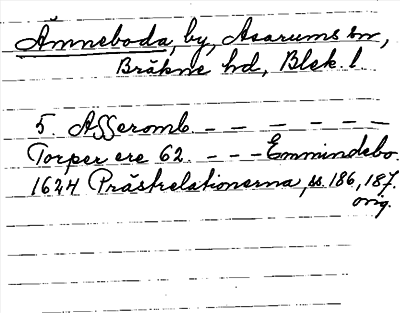 Ämneboda, by, Asarums sn,
Bräkne hd, Blek. l.
5. Asseromb. – – – – – –
Torper ere 62. – – – Emmindebo.
1624 Prästrelationerna, ss. 186, 187.
orig.